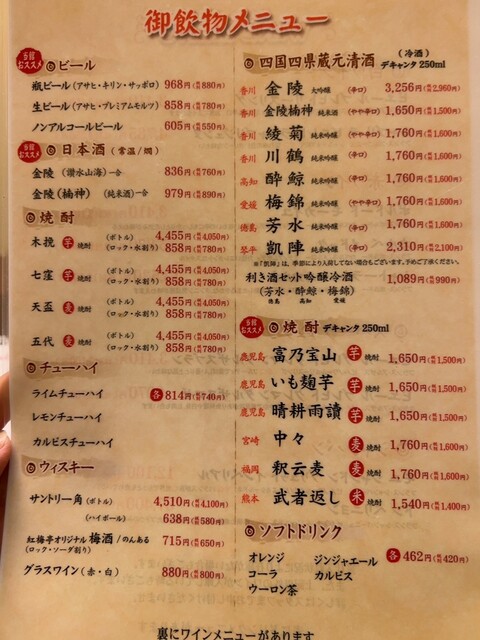 御飲物メニュー
当館おススメ
◎ビール
瓶ビール(アサヒ・キリン・サッポロ) 968円(税別880円)
生ビール(アサヒ・プレミアムモルツ) 858円(税別780円)
ノンアルコールビール 605円(税別550円)
当館おススメ
◎日本酒(常温/燗)
金陵(讃水山海)一合 836円(税別760円)
金陵(楠神)(純米酒)一合 979円(税別890円)
◎焼酎
木挽 芋 焼酎 (ボトル) 4,455円(税別4,050円)
(ロック・水割り) 858円(税別780円)
七窪 芋 焼酎 (ボトル) 4,455円(税別4,050円)
(ロック・水割り) 858円(税別780円)
天盃 麦 焼酎 (ボトル) 4,455円(税別4,050円)
(ロック・水割り) 858円(税別780円)
五代 麦 焼酎 (ボトル) 4,455円(税別4,050円)
(ロック・水割り) 858円(税別780円)
◎チューハイ
ライムチューハイ 各814円(税別740円)
レモンチューハイ
カルピスチューハイ
◎ウィスキー
サントリー角(ボトル) 4,510円(税別4,100円)
(ハイボール) 638円(税別580円)
紅梅亭オリジナル梅酒/のんある 715円(税別650円)
(ロック・ソーダ割り)
グラスワイン(赤・白) 880円(税別800円)
◎四国四県蔵元清酒 (冷酒)
デキャンタ 250ml
香川 金陵 大吟醸 (辛口) 3,256円(税別2,960円)
香川 金陵楠神 純米酒 (やや辛口) 1,650円(税別1,500円)
香川 綾菊 純米吟醸 (やや辛口) 1,760円(税別1,600円)
香川 川鶴 純米吟醸 (辛口) 1,760円(税別1,600円)
高知 酔鯨 純米吟醸 (辛口) 1,760円(税別1,600円)
愛媛 梅錦 純米吟醸 (やや辛口) 1,760円(税別1,600円)
徳島 芳水 純米吟醸 (辛口) 1,760円(税別1,600円)
琴平 凱陣 純米吟醸 (辛口) 2,310円(税別2,100円)
*「凱陣」は、季節により入荷してない場合もございます。予めご了承ください。
利き酒セット吟醸冷酒 1,089円(税別990円)
(芳水・酔鯨・梅錦)
徳島 高知 愛媛
当館おススメ
◎焼酎 デキャンタ 250ml
鹿児島 富乃宝山 芋 焼酎 1,650円(税別1,500円)
鹿児島 いも麹芋 芋 焼酎 1,650円(税別1,500円)
鹿児島 晴耕雨讀 芋 焼酎 1,650円(税別1,500円)
宮崎 中々 麦 焼酎 1,760円(税別1,600円)
福岡 釈云麦 麦 焼酎 1,760円(税別1,600円)
熊本 武者返し 米 焼酎 1,540円(税別1,400円)
◎ソフトドリンク
オレンジ ジンジャエール 各462円(税別420円)
コーラ カルピス
ウーロン茶
裏にワインメニューがあります